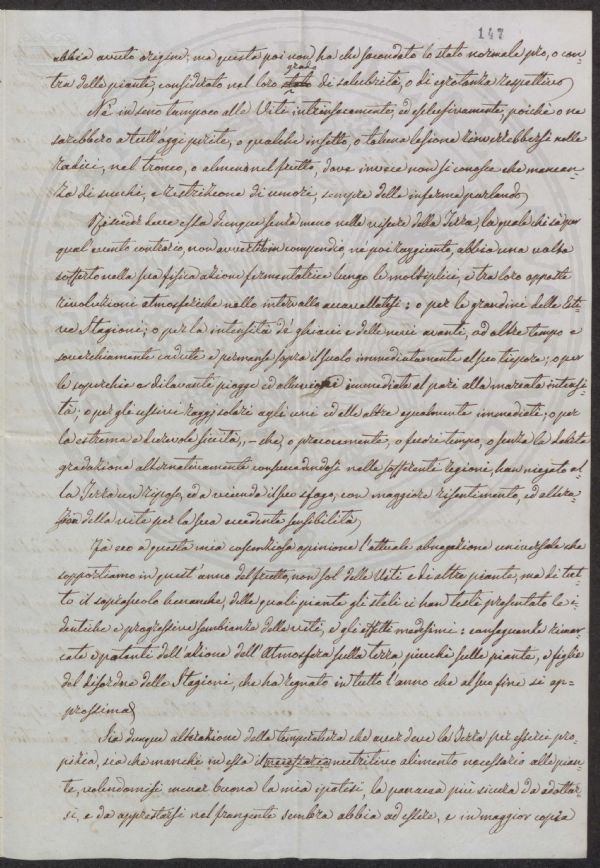 147
abbia avuto origine; ma questa poi non ha che secondato lo stato normale pro, o con-
tra delle piante, considerato nel loro grado di salubrità, o di egrotanza rispettivo.
Né in seno tampoco alle Viti intrinsecamente, ed esclusivamente, poiché o ne
sarebbero a tutt'oggi perite, o qualche insetto, o taluna lesione rinverrebbesi nelle
radici, nel tronco, o almeno nel frutto, dove invece non si conosce che mancan-
za di succhi, e restrizione di umori, sempre delle inferme parlando.
Risieder deve essa dunque senza meno nelle viscere della Terra, la quale chi sà per
qual evento contrario, non avvertito in compendio, né poi raggiunto, abbia una volta
sofferto nella sua fisica azione fermentatrice lungo le moltiplici, e tra loro opposte
rivoluzioni atmosferiche nello intervallo accavallatesi; o per le grandini delle Esti-
ve Stagioni; o per la intensità de' ghiacci e delle nevi avanti, od oltre tempo e
soverchiamente cadute e permanse sopra il suolo immediatamente al suo tepore; o per
le soperchie o dilavante piogge ed alluvioni immediate al pari alla marcata intensi-
tà; o per gli estivi raggi solari agli uni ed alle altre egualmente immediati; o per
la estrema e durevole siccità, - che, o precocemente, o fuori tempo, o senza la solita
gradazione alternativamente conseguendosi nelle sofferente legioni, han niegato al-
la Terra un riposo, ed a vicenda il suo sfogo, con maggiore risentimento, ed altera-
zion della vite per la sua eccedente sensibilità.
Fà eco a questa mia coscenziosa opinione l'attuale abnegazione universale che
sopportiamo in quest'anno del frutto, non sol delle Viti e di altre piante, ma di tut-
to il soprasuolo benanche, delle quali piante gli steli ci han testè presentato le i-
dentiche e progressive sembianze delle viti, e gli effetti medesimi: conseguenze rimar-
cate e patenti dell'azione dell'Atmosfera sulla terra piucchè sulle piante, e figlie
del disordine delle Stagioni, che ha regnato in tutto l'anno che al suo fine si ap-
prossima.
Sia dunque alterazione della temperatura che aver deve la Terra per esserle pro-
pizia, sia che manchi in essa il necessario nutritivo alimento necessario alle pian-
te, volendomisi menar buona la mia ipotesi, la panacea più sicura da adottar-
si, e da apprestarsi nel frangente sembra abbia ad essere, e in maggior copia